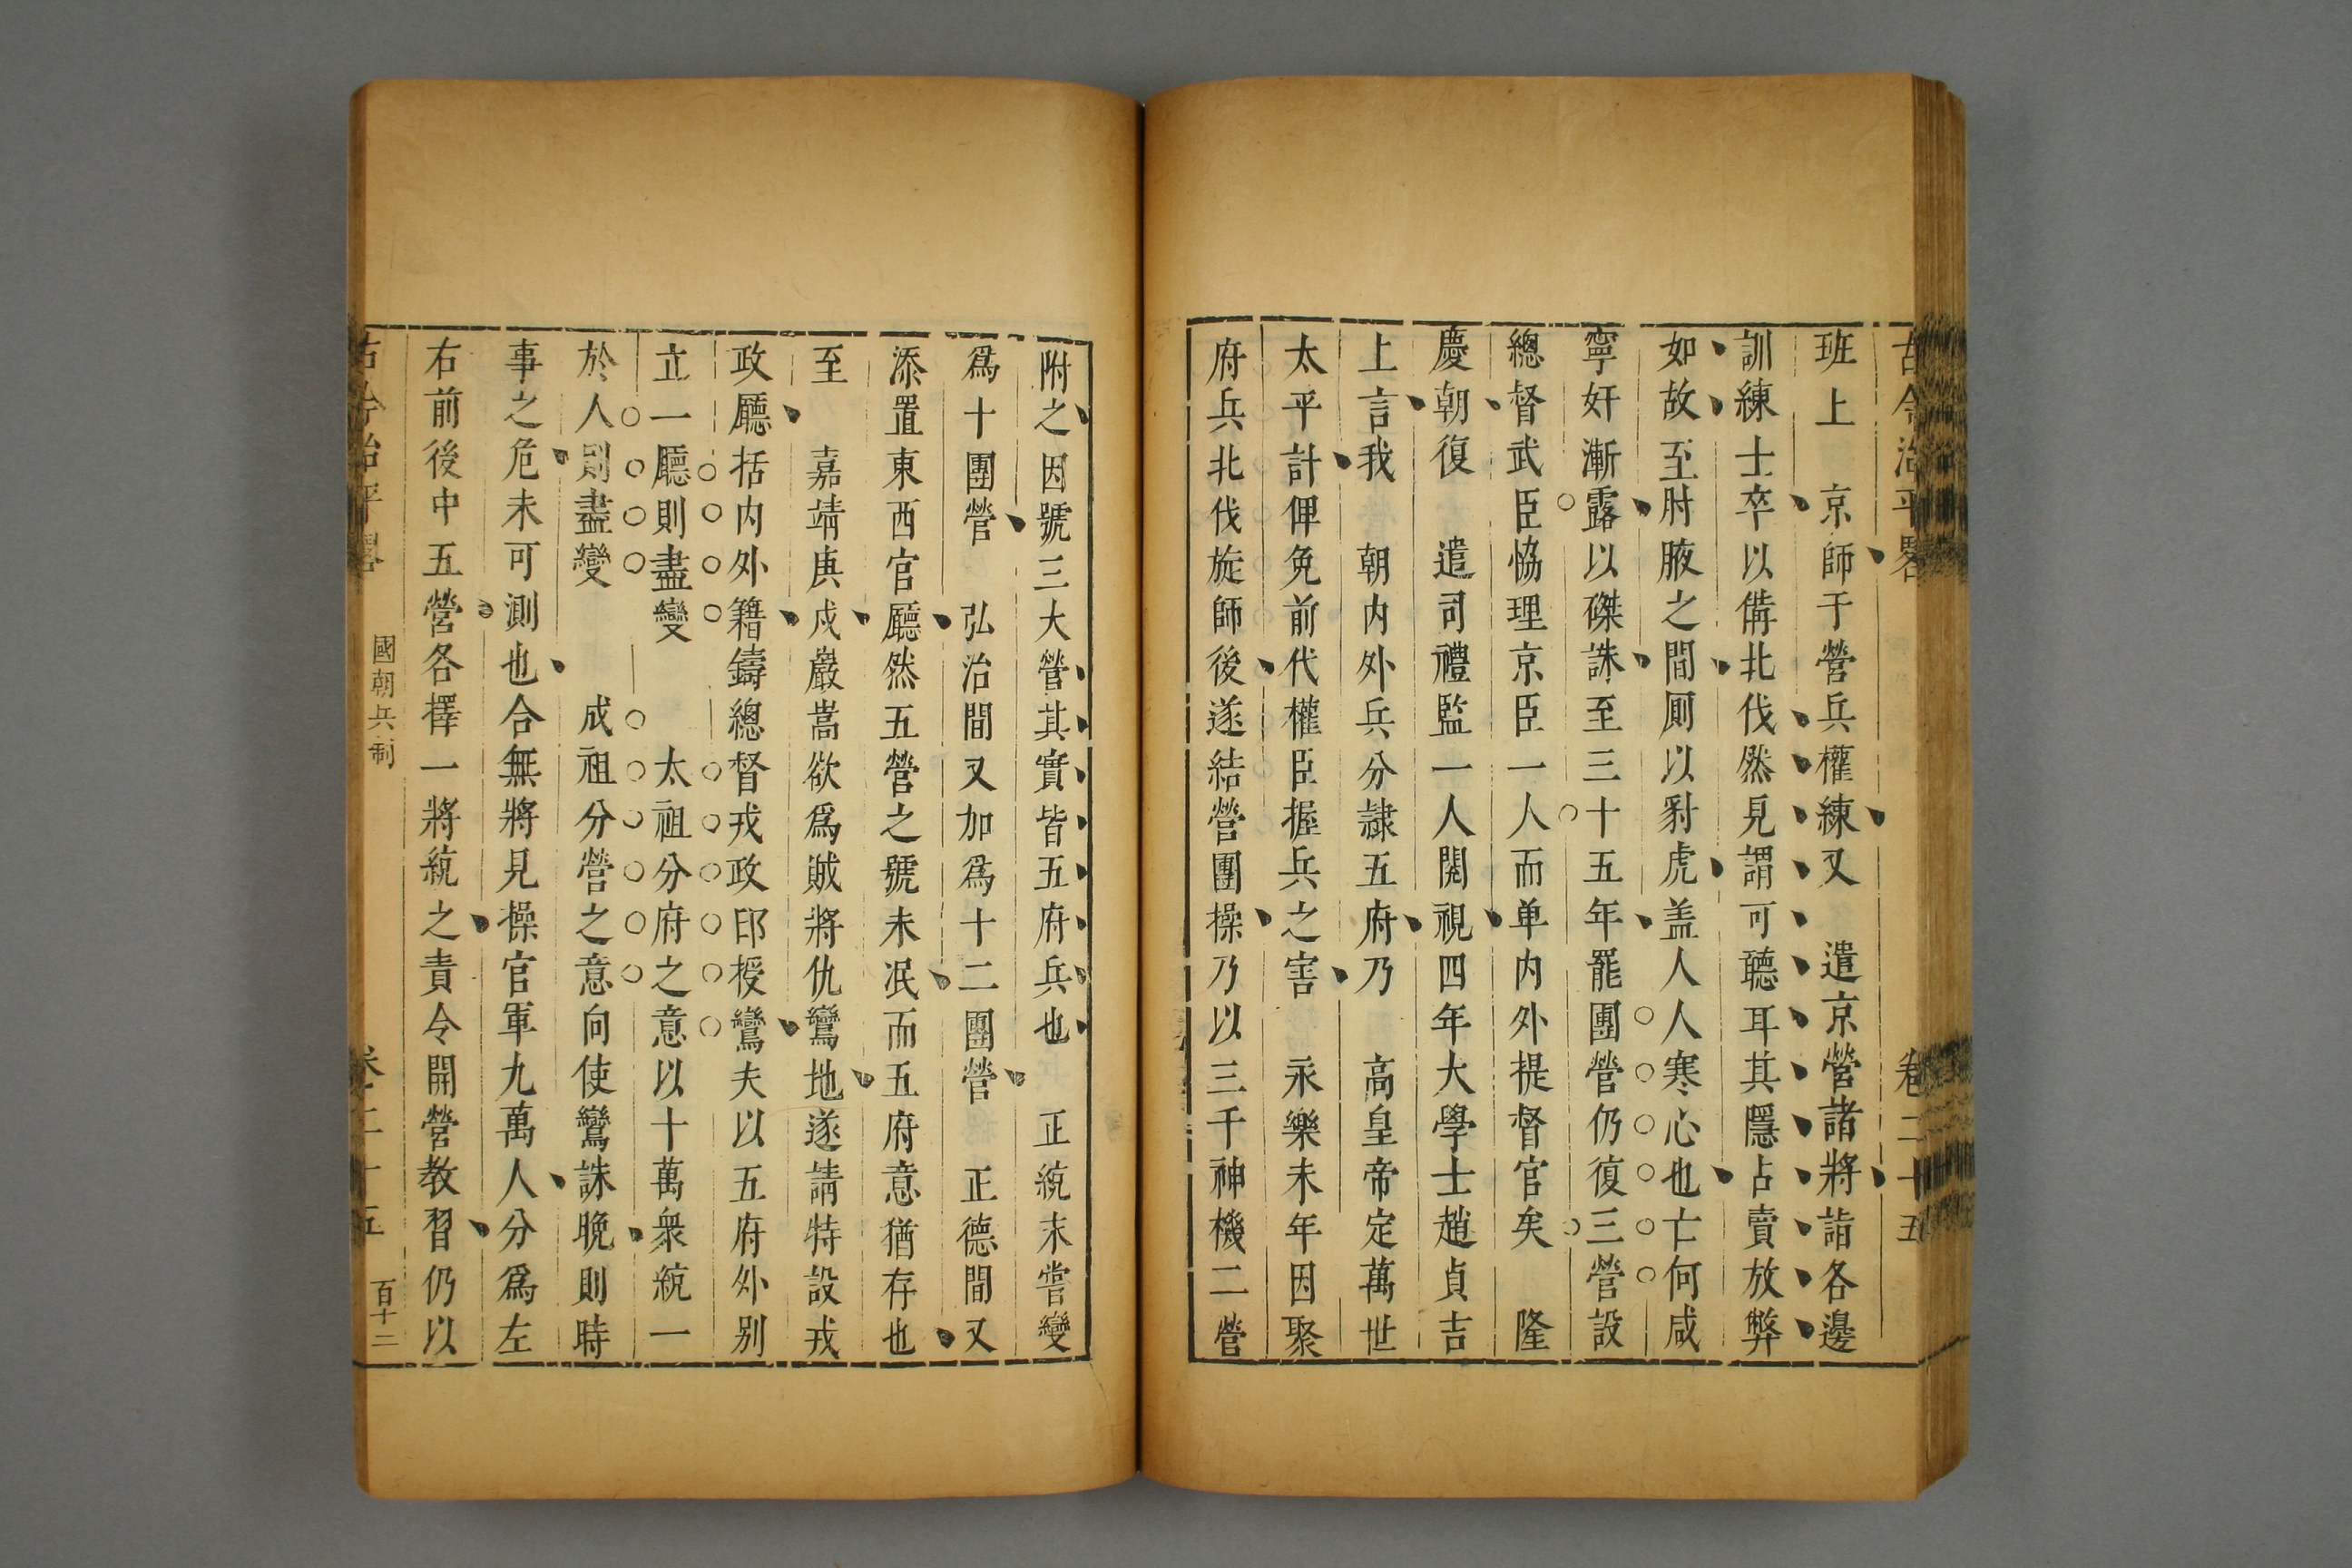 古今治平畧 卷二十五
班上 京師于營兵權練又 遣京營諸將詣各邊
訓練士卒以備北伐然見謂可聽耳其隱占賣放弊
如故至肘腋之間厠以豺虎盖人人寒心也亡何咸
寧奸漸露以磔誅至三十五年罷團營仍復三營設
總督武臣恊理京臣一人而单内外提督官矣 隆
慶朝復 遣司禮監一人閱視四年大學士趙貞吉
上言我 朝内外兵分隷五府乃 高皇帝定萬世
太平計俾免前代權臣握兵之害 永樂末年因聚
府兵北伐旋師後遂結營團操乃以三千神機二營
附之因號三大營其實皆五府兵也 正統末嘗變
爲十團營 弘治間又加爲十二團營 正德間又
添置東西官廳然五營之號未泯而五府意猶存也
至 嘉靖庚戍嚴嵩欲爲賊將仇鸞地遂請特設戎
政廳括内外籍鑄總督戎政印授鸞夫以五府外别
立一廳則盡變 太祖分府之意以十萬衆統一
於人則盡變 成祖分營之意向使鸞誅晚則時
事之危未可測也合無將見操官軍九萬人分爲左
右前後中五營各擇一將統之責令開營教習仍以
古今治平畧 國朝兵制 卷二十五 百十二